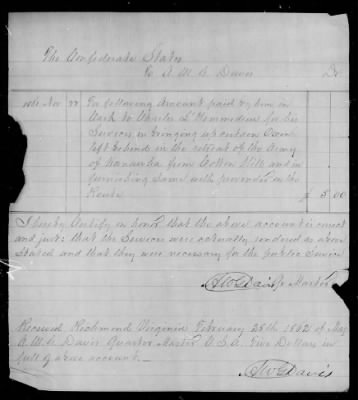 The Confederate States
To A. W. G. Davis Dr.
1861 Nov 22 For following amount paid by him in
Cash to Charles L'Hommedieu for his
Services, in bringing up sixteen Oxen
left behind in the retreat of the Army
of Kanawha from Cotton Hill and in
furnishing same with provender on the
Route $ 5.00
I hereby Certify on honor that the above account is correct
and just: that the Services were actually rendered as above
Stated and that they were necessary for the public Service
AWG Davis Qr Master
Received Richmond Virginia February 28th 1862 of Maj
A. W. G. Davis Quarter Master C.S.A. Five Dollars in
full of above account.
AWG Davis